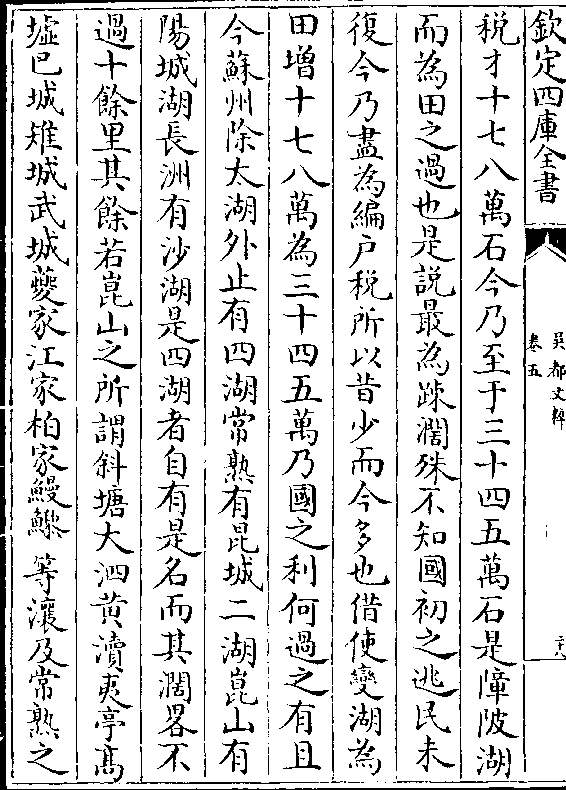 欽定四庫全書
吳都文粹
卷五
二十八
稅才十七八萬石今乃至于三十四五萬石是障陂湖
而為田之過也是說最為踈濶殊不知國初之逃民未
復今乃盡為編户税所以昔少而今多也借使變湖為
田增十七八萬為三十四五萬乃國之利何過之有且
今蘇州除太湖外止有四湖常熟有昆城二湖崑山有
陽城湖長洲有沙湖是四湖者自有是名而其濶畧不
過十餘里其餘若崑山之所謂斜塘大泗黄瀆夷亭髙
墟巴城雉城武城夔家江家柏家鰻鱺等瀼及常熟之